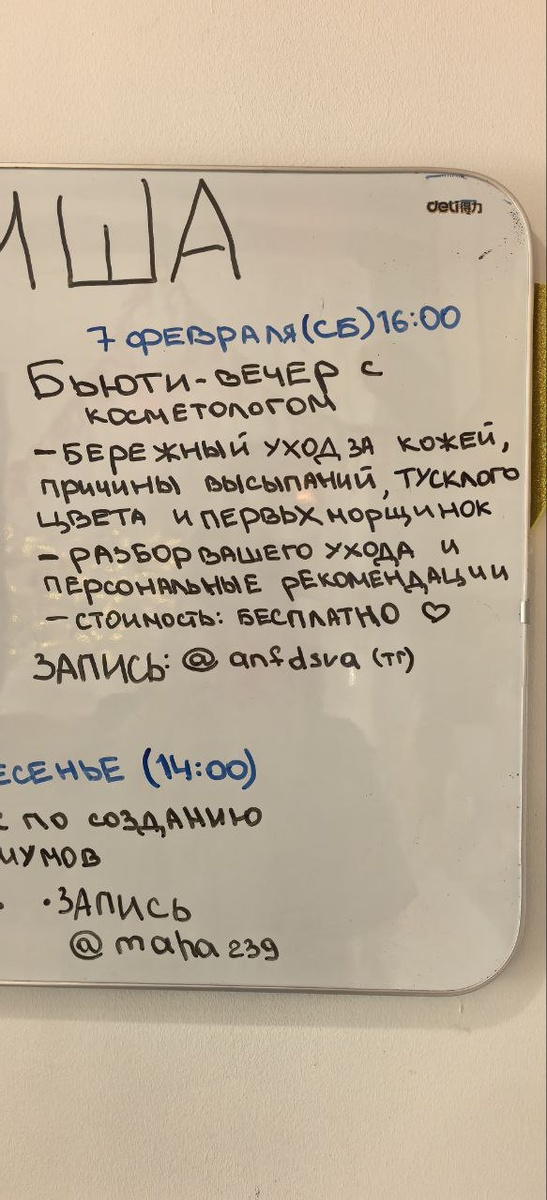 ИША
deli得力
7 ФЕВРАЛЯ (СБ) 16:00
БЬЮТИ-ВЕЧЕР С
КОСМЕТОЛОГОМ
- БЕРЕЖНЫЙ УХОД ЗА КОЖЕЙ,
ПРИЧИНЫ ВЫСЫПАНИЙ, ТУСКЛОГО
ЦВЕТА И ПЕРВЫХ МОРЩИНОК
- РАЗБОР ВАШЕГО УХОДА И
ПЕРСОНАЛЬНЫЕ РЕКОМЕНДАЦИИ
- СТОИМОСТЬ: БЕСПЛАТНО ♡
ЗАПИСЬ: @anfdsva (тг)
ЕСЕНЬЕ (14:00)
С ПО СОЗДАНИЮ
ИУМОВ
• ЗАПИСЬ
@maha239